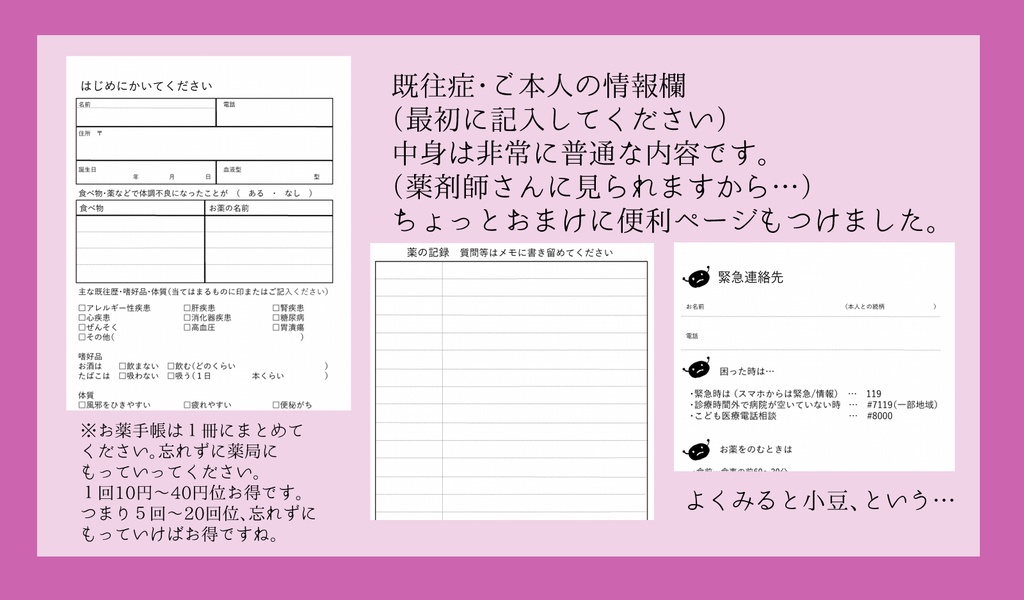 はじめにかいてください
名前
電話
住所 〒
誕生日 年 月 日
血液型 型
食べ物・薬などで体調不良になったことが ( ある ・ なし )
食べ物
お薬の名前
主な既往歴・嗜好品・体質(当てはまるものに印またはご記入ください)
□アレルギー性疾患 □肝疾患 □腎疾患
□心疾患 □消化器疾患 □糖尿病
□ぜんそく □高血圧 □胃潰瘍
□その他( )
嗜好品
お酒は □飲まない □飲む(どのくらい )
たばこは □吸わない □吸う(1日 本くらい )
体質
□風邪をひきやすい □疲れやすい □便秘がち
※お薬手帳は1冊にまとめて
ください。忘れずに薬局に
もっていってください。
1回10円~40円位お得です。
つまり5回~20回位、忘れずに
もっていけばお得ですね。
既往症・ご本人の情報欄
(最初に記入してください)
中身は非常に普通な内容です。
(薬剤師さんに見られますから…)
ちょっとおまけに便利ページもつけました。
薬の記録 質問等はメモに書き留めてください
緊急連絡先
お名前 (本人との続柄 )
電話
困った時は…
・緊急時は (スマホからは緊急/情報) … 119
・診療時間外で病院が空いていない時 … #7119(一部地域)
・こども医療電話相談 … #8000
お薬をのむときは
よくみると小豆、という…